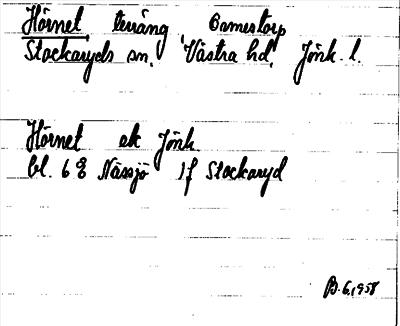 Hörnet terräng Bamestorp
Stockaryds sn. Västra hd. Jönk. l.
Hörnet ek Jönk.
bl. 6 g Nässjö 1f Stockaryd
B. 6, 1958